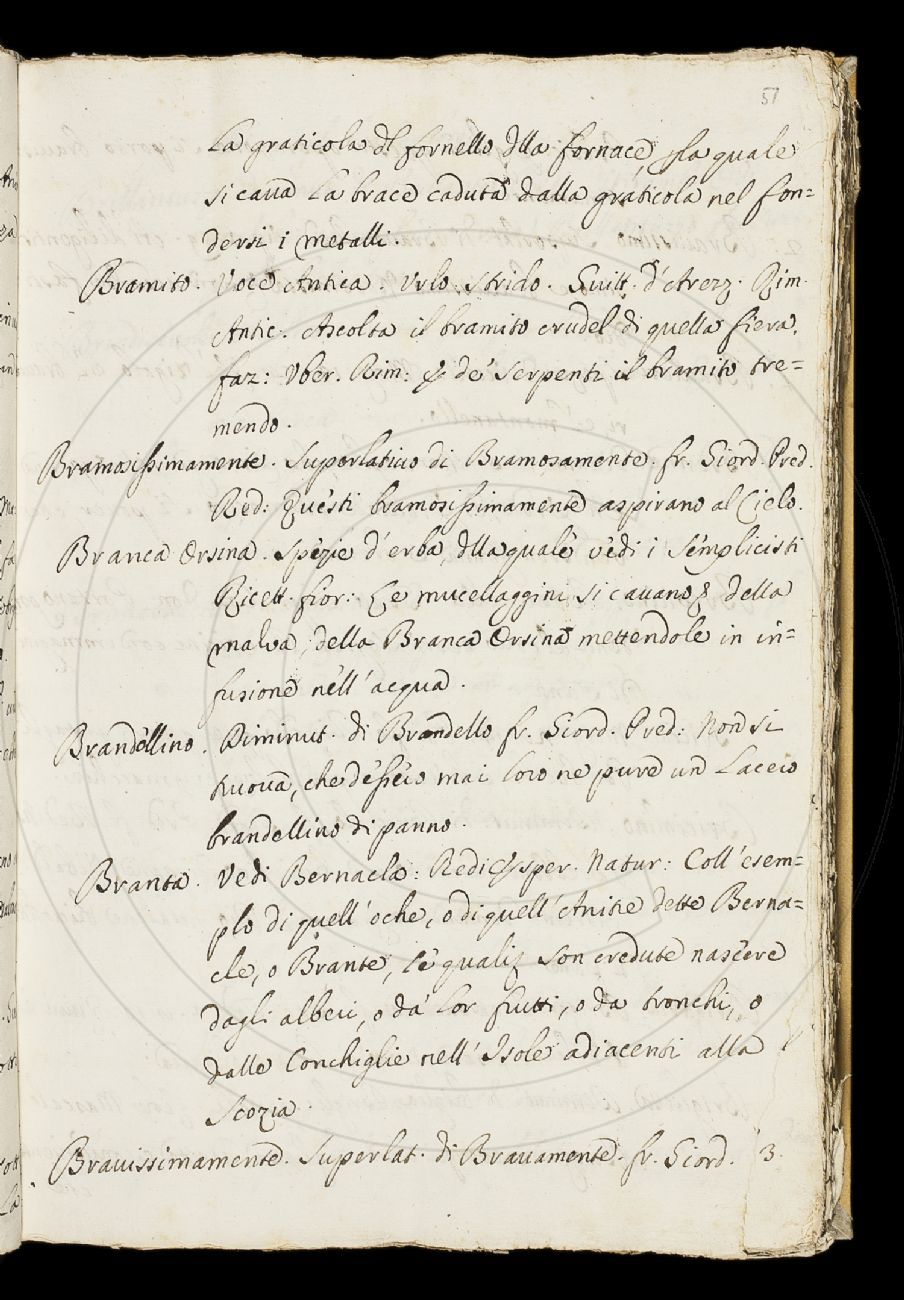 51
La graticola dl fornello dlla fornace, p la quale
si cava la brace caduta dalla graticola nel fon=
dersi i metalli.
Bramito. Voce Antica. Urlo. Strido. Guitt. d'Arezz. Rim.
Antic. Ascolta il bramito crudel di quella fiera.
faz: Uber. Rim: E de' serpenti il bramito tre=
mendo.
Bramosissimamente. Superlativo di Bramosamente. fr. Giord. Pred.
Red: Questi bramosissimamente aspirano al Cielo.
Branca Orsina. Spezie d'erba, dlla quale vedi i Semplicisti
Ricett. fior: Le mucellaggini si cavano della
malva, della Branca Orsina mettendole in in=
fusione nell'acqua.
Brandellino. Diminut. di Brandello fr. Giord. Pred: Non si
truova, che dessero mai loro ne pure un laccio
brandellino di panno.
Branta. Vedi Bernacla: Redi Esper. Natur: Coll'esem=
plo di quell'oche, o di quell'Anitre dette Berna=
cle, o Brante, le quali son credute nascere
dagli alberi, o da' lor frutti, o da tronchi, o
dalle Conchiglie nell'Isole adiacenti alla
Scozia.
Bravissimamente. Superlat. di Bravamente. fr. Giord. 3.